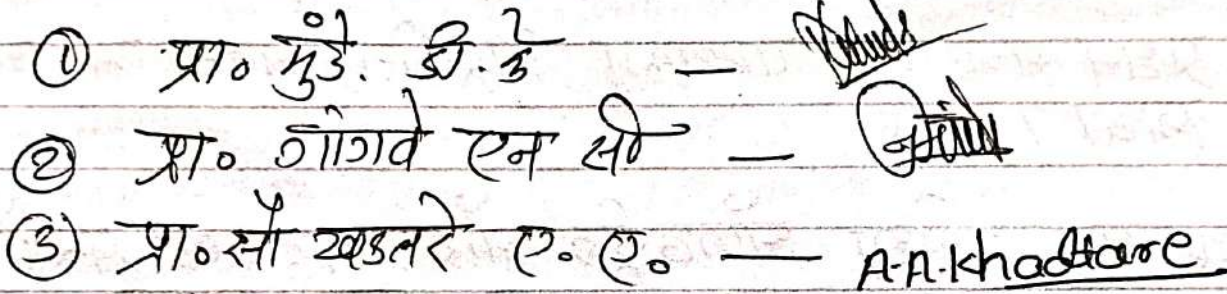 ① प्रा० मुंडे. डी. के —
② प्रा० गोगवे एन सी —
③ प्रा० सौ खडतरे ए. ए. — A.A.Khadtare